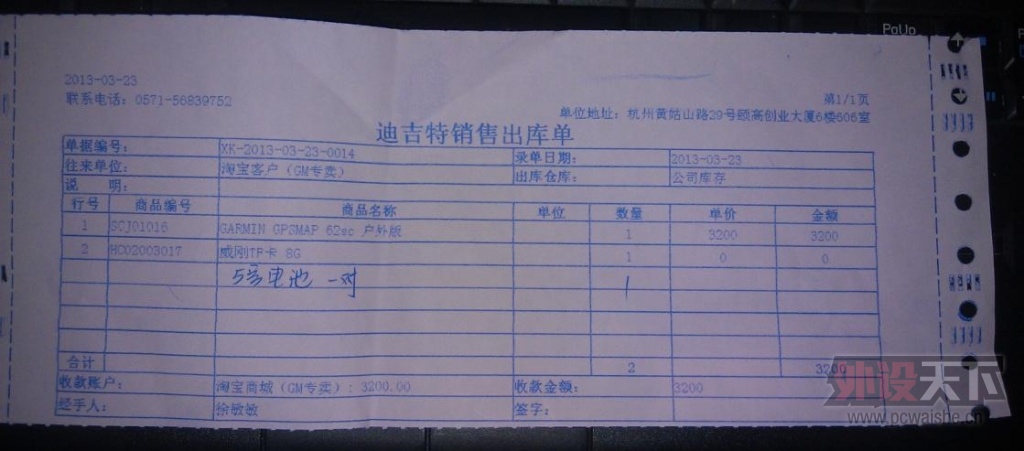 2013-03-23
联系电话: 0571-56839752
第1/1页
单位地址: 杭州黄姑山路29号颐高创业大厦6楼606室
迪吉特销售出库单
单据编号: XK-2013-03-23-0014 录单日期: 2013-03-23
往来单位: 淘宝客户(GM专卖) 出库仓库: 公司库存
说 明:
行号 商品编号 商品名称 单位 数量 单价 金额
1 SCJ01016 GARMIN GPSMAP 62sc 户外版 1 3200 3200
2 HC02003017 威刚TF卡 8G 1 0 0
5号电池 一对 1
合计 2 3200
收款账户: 淘宝商城(GM专卖): 3200.00 收款金额: 3200
经手人: 徐敏敏 签字:
外设天下
www.pcwaishe.cn